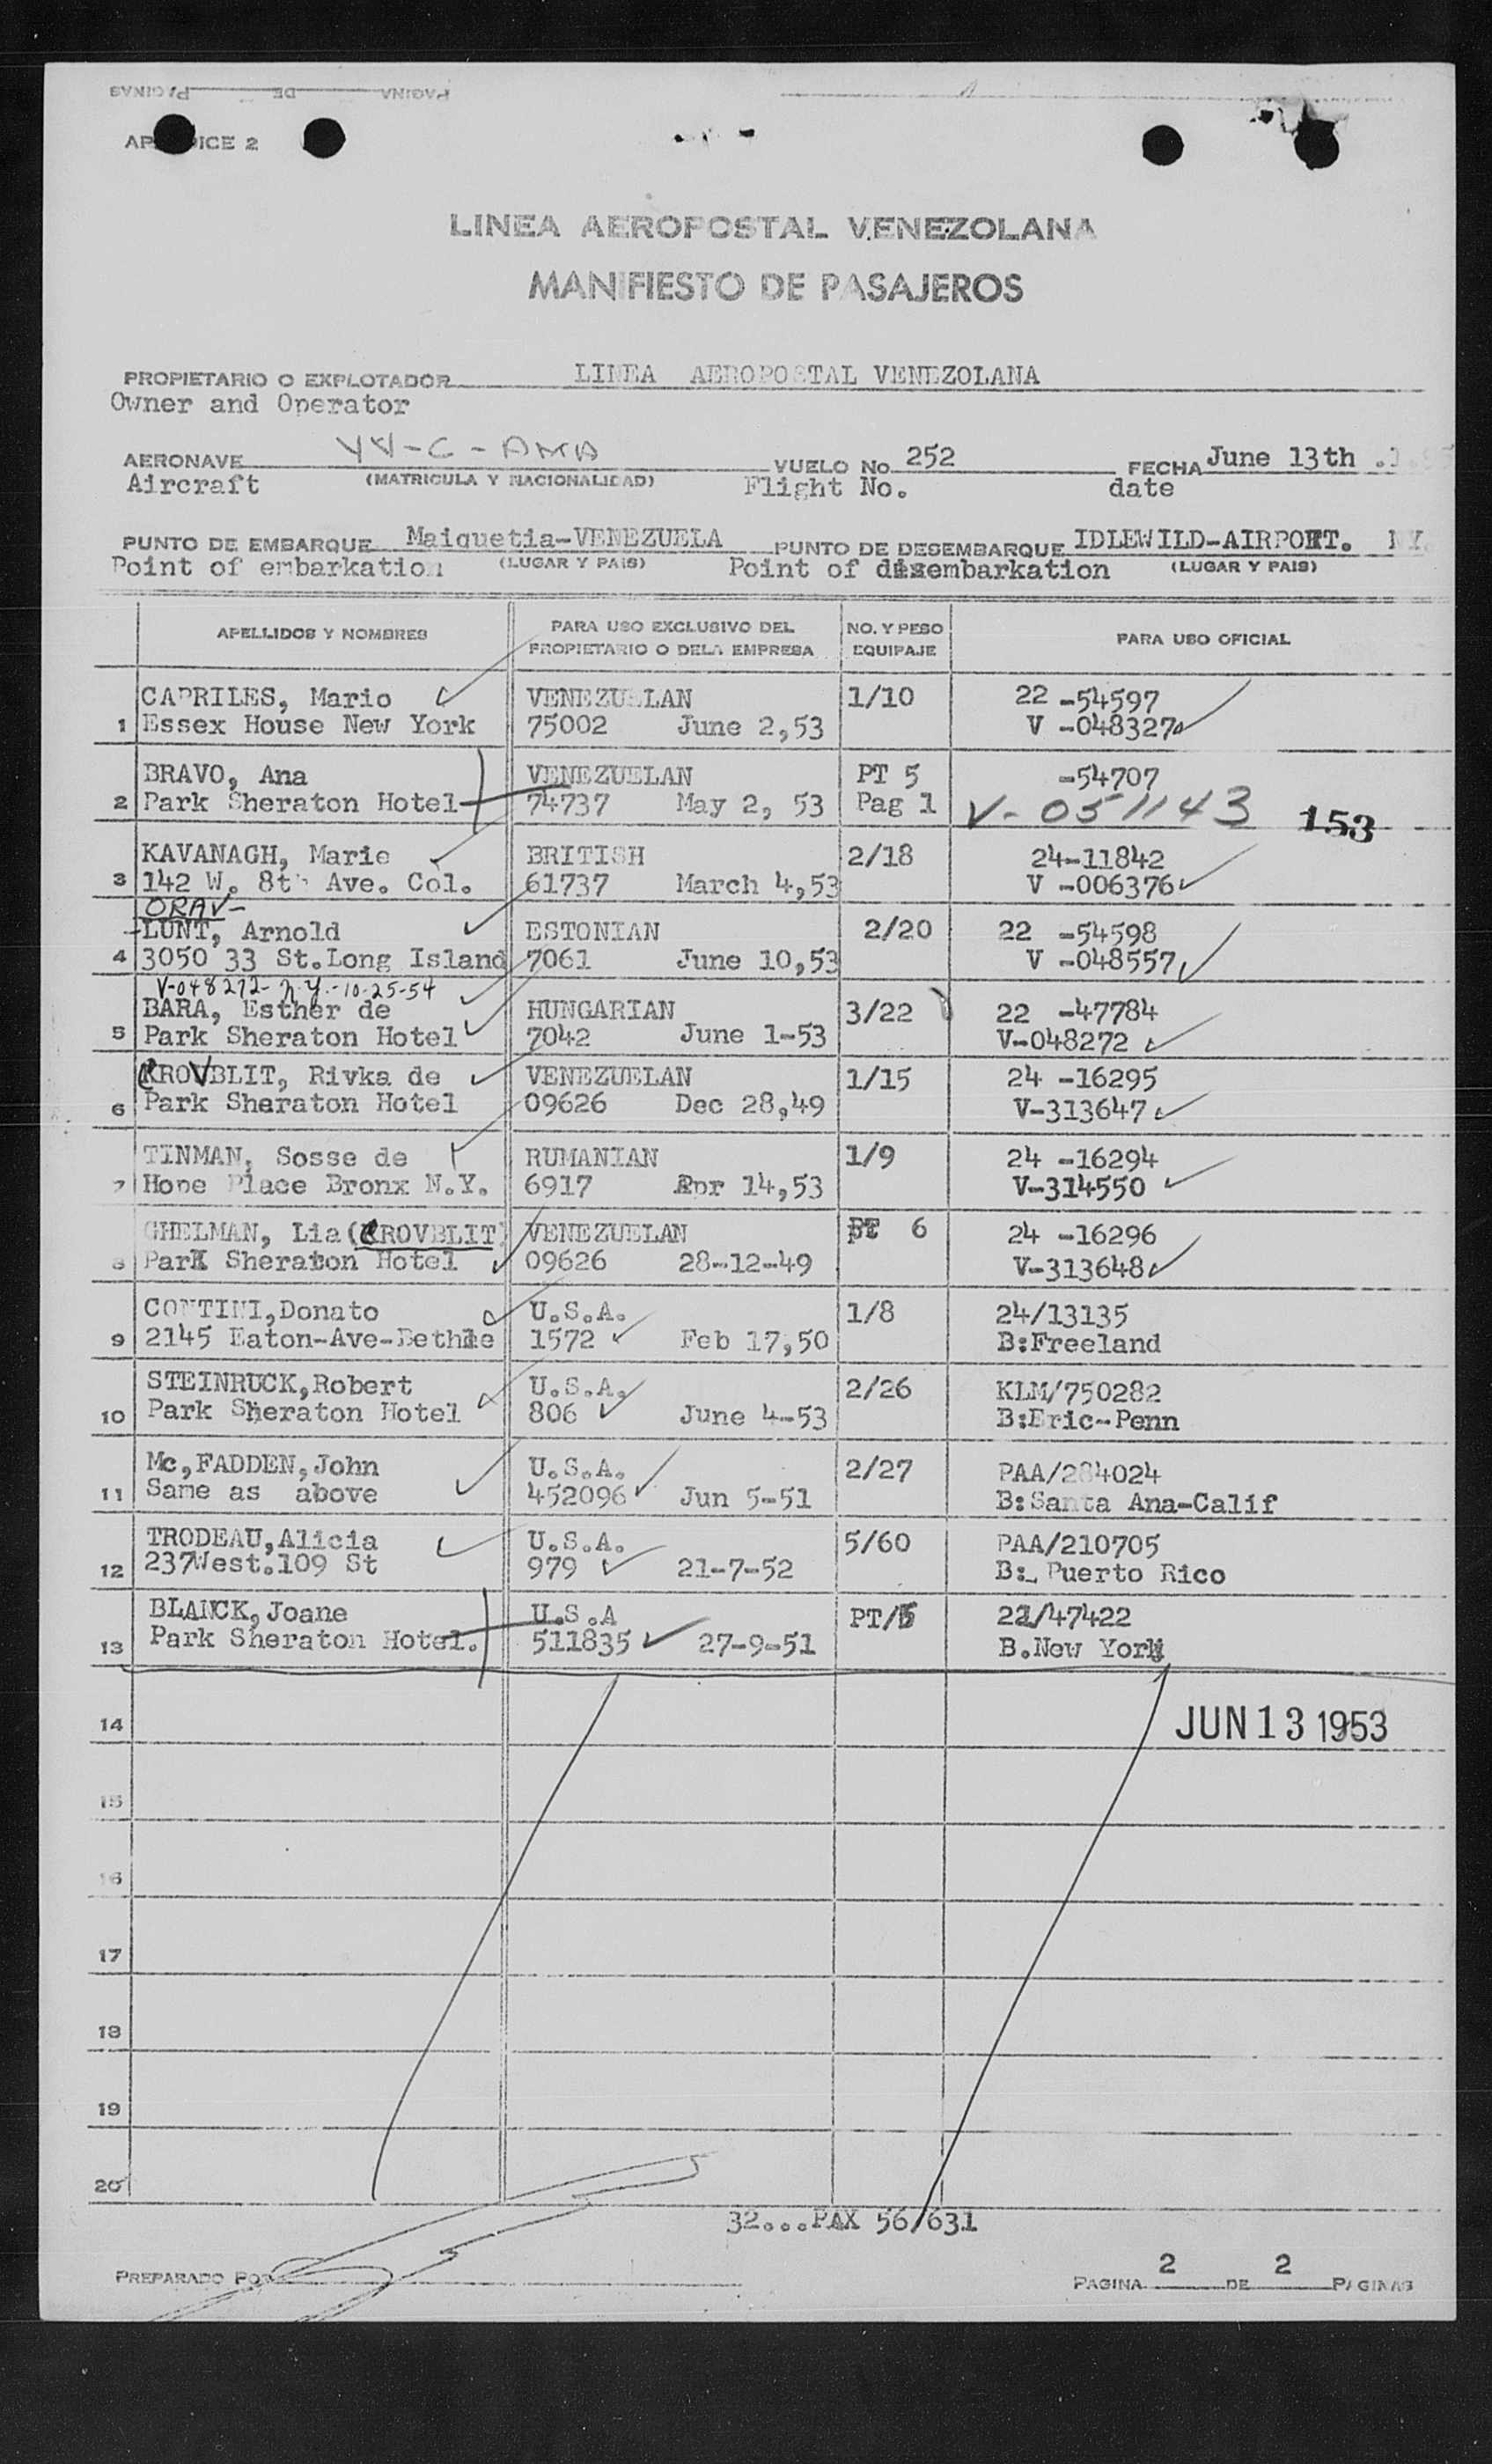 PAGINA DE PAGINAS
APENDICE 2
LINEA AEROPOSTAL VENEZOLANA
MANIFIESTO DE PASAJEROS
PROPIETARIO O EXPLOTADOR LINEA AEROPOSTAL VENEZOLANA
Owner and Operator
AERONAVE YV-C-AMA VUELO No 252 FECHA June 13th
Aircraft (MATRICULA Y NACIONALIDAD) Flight No. date
PUNTO DE EMBARQUE Maiquetia-VENEZUELA PUNTO DE DESEMBARQUE IDLEWILD-AIRPORT. NY.
Point of embarkation (LUGAR Y PAIS) Point of disembarkation (LUGAR Y PAIS)
APELLIDOS Y NOMBRES PARA USO EXCLUSIVO DEL NO. Y PESO PARA USO OFICIAL
PROPIETARIO O DE LA EMPRESA EQUIPAJE
CAPRILES, Mario VENEZUELAN 1/10 22 -54597
1 Essex House New York 75002 June 2,53 V -048327
BRAVO, Ana VENEZUELAN PT 5 -54707
2 Park Sheraton Hotel 74737 May 2, 53 Pag 1 V-051143 153
KAVANAGH, Marie BRITISH 2/18 24-11842
3 142 W. 8th Ave. Col. 61737 March 4,53 V -006376
ORAV-
LUNT, Arnold ESTONIAN 2/20 22 -54598
4 3050 33 St.Long Island 7061 June 10,53 V -048557
V-048272- N.Y.-10-25-54
BARA, Esther de HUNGARIAN 3/22 22 -47784
5 Park Sheraton Hotel 7042 June 1-53 V-048272
CROVBLIT, Rivka de VENEZUELAN 1/15 24 -16295
6 Park Sheraton Hotel 09626 Dec 28,49 V-313647
TINMAN, Sosse de RUMANIAN 1/9 24 -16294
7 Hope Place Bronx N.Y. 6917 Apr 14,53 V-314550
GHELMAN, Lia (CROVBLIT) VENEZUELAN PT 6 24 -16296
8 Park Sheraton Hotel 09626 28-12-49 V-313648
CONTINI,Donato U.S.A. 1/8 24/13135
9 2145 Eaton-Ave-Bethle 1572 Feb 17,50 B:Freeland
STEINRUCK,Robert U.S.A. 2/26 KLM/750282
10 Park Sheraton Hotel 806 June 4-53 B:Eric-Penn
Mc,FADDEN,John U.S.A. 2/27 PAA/284024
11 Same as above 452096 Jun 5-51 B:Santa Ana-Calif
TRODEAU,Alicia U.S.A. 5/60 PAA/210705
12 237West.109 St 979 21-7-52 B:_Puerto Rico
BLANCK,Joane U.S.A PT/5 22/47422
13 Park Sheraton Hotel. 511835 27-9-51 B.New York
14 JUN 13 1953
15
16
17
18
19
20
32...PAX 56/631
PREPARADO POR PAGINA 2 DE 2 PAGINAS